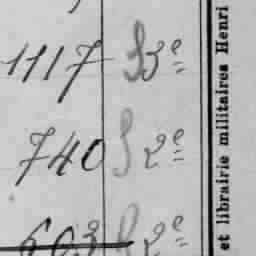 1117 3e
740 2e
603 2e
et librairie militaires Henri